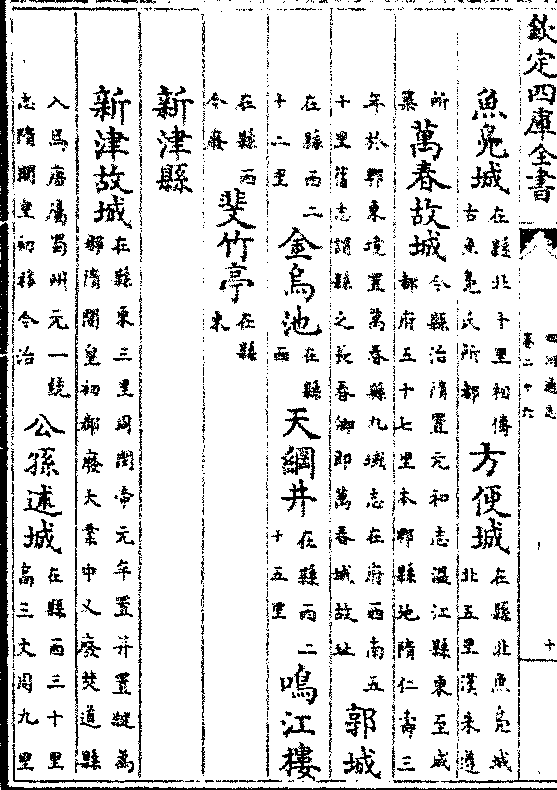 欽定四庫全書 四川通志 卷二十六 十
魚鳧城 在縣北十里相傳古魚鳧氏所都 方便城 在縣北魚鳧城北五里漢末遵
所築 萬春故城 今縣治隋置元和志溫江縣東至成都府五十七里本郫縣地隋仁壽三
年於郫東境置萬春縣九域志在府西南五十里舊志謂縣之長春鄉即萬春城故址 郭城
在縣西二十二里 金烏池 在縣西 天綱井 在縣西二十五里 鳴江樓
在縣西今廢 斐竹亭 在縣東
新津縣
新津故城 在縣東三里周閔帝元年置并置犍為郡隋開皇初郡廢大業中又廢僰道縣
入焉唐屬蜀州元一統志隋開皇初移今治 公孫述城 在縣西三十里高三丈周九里